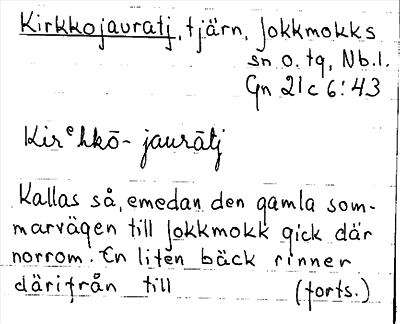 Kirkkojauratj, tjärn, Jokkmokks
sn o. tg, Nb.l.
Gn 21c6:43
Kirᵉhkō-jaurātj
Kallas så, emedan den gamla som-
marvägen till Jokkmokk gick där
norrom. En liten bäck rinner
därifrån till (forts.)